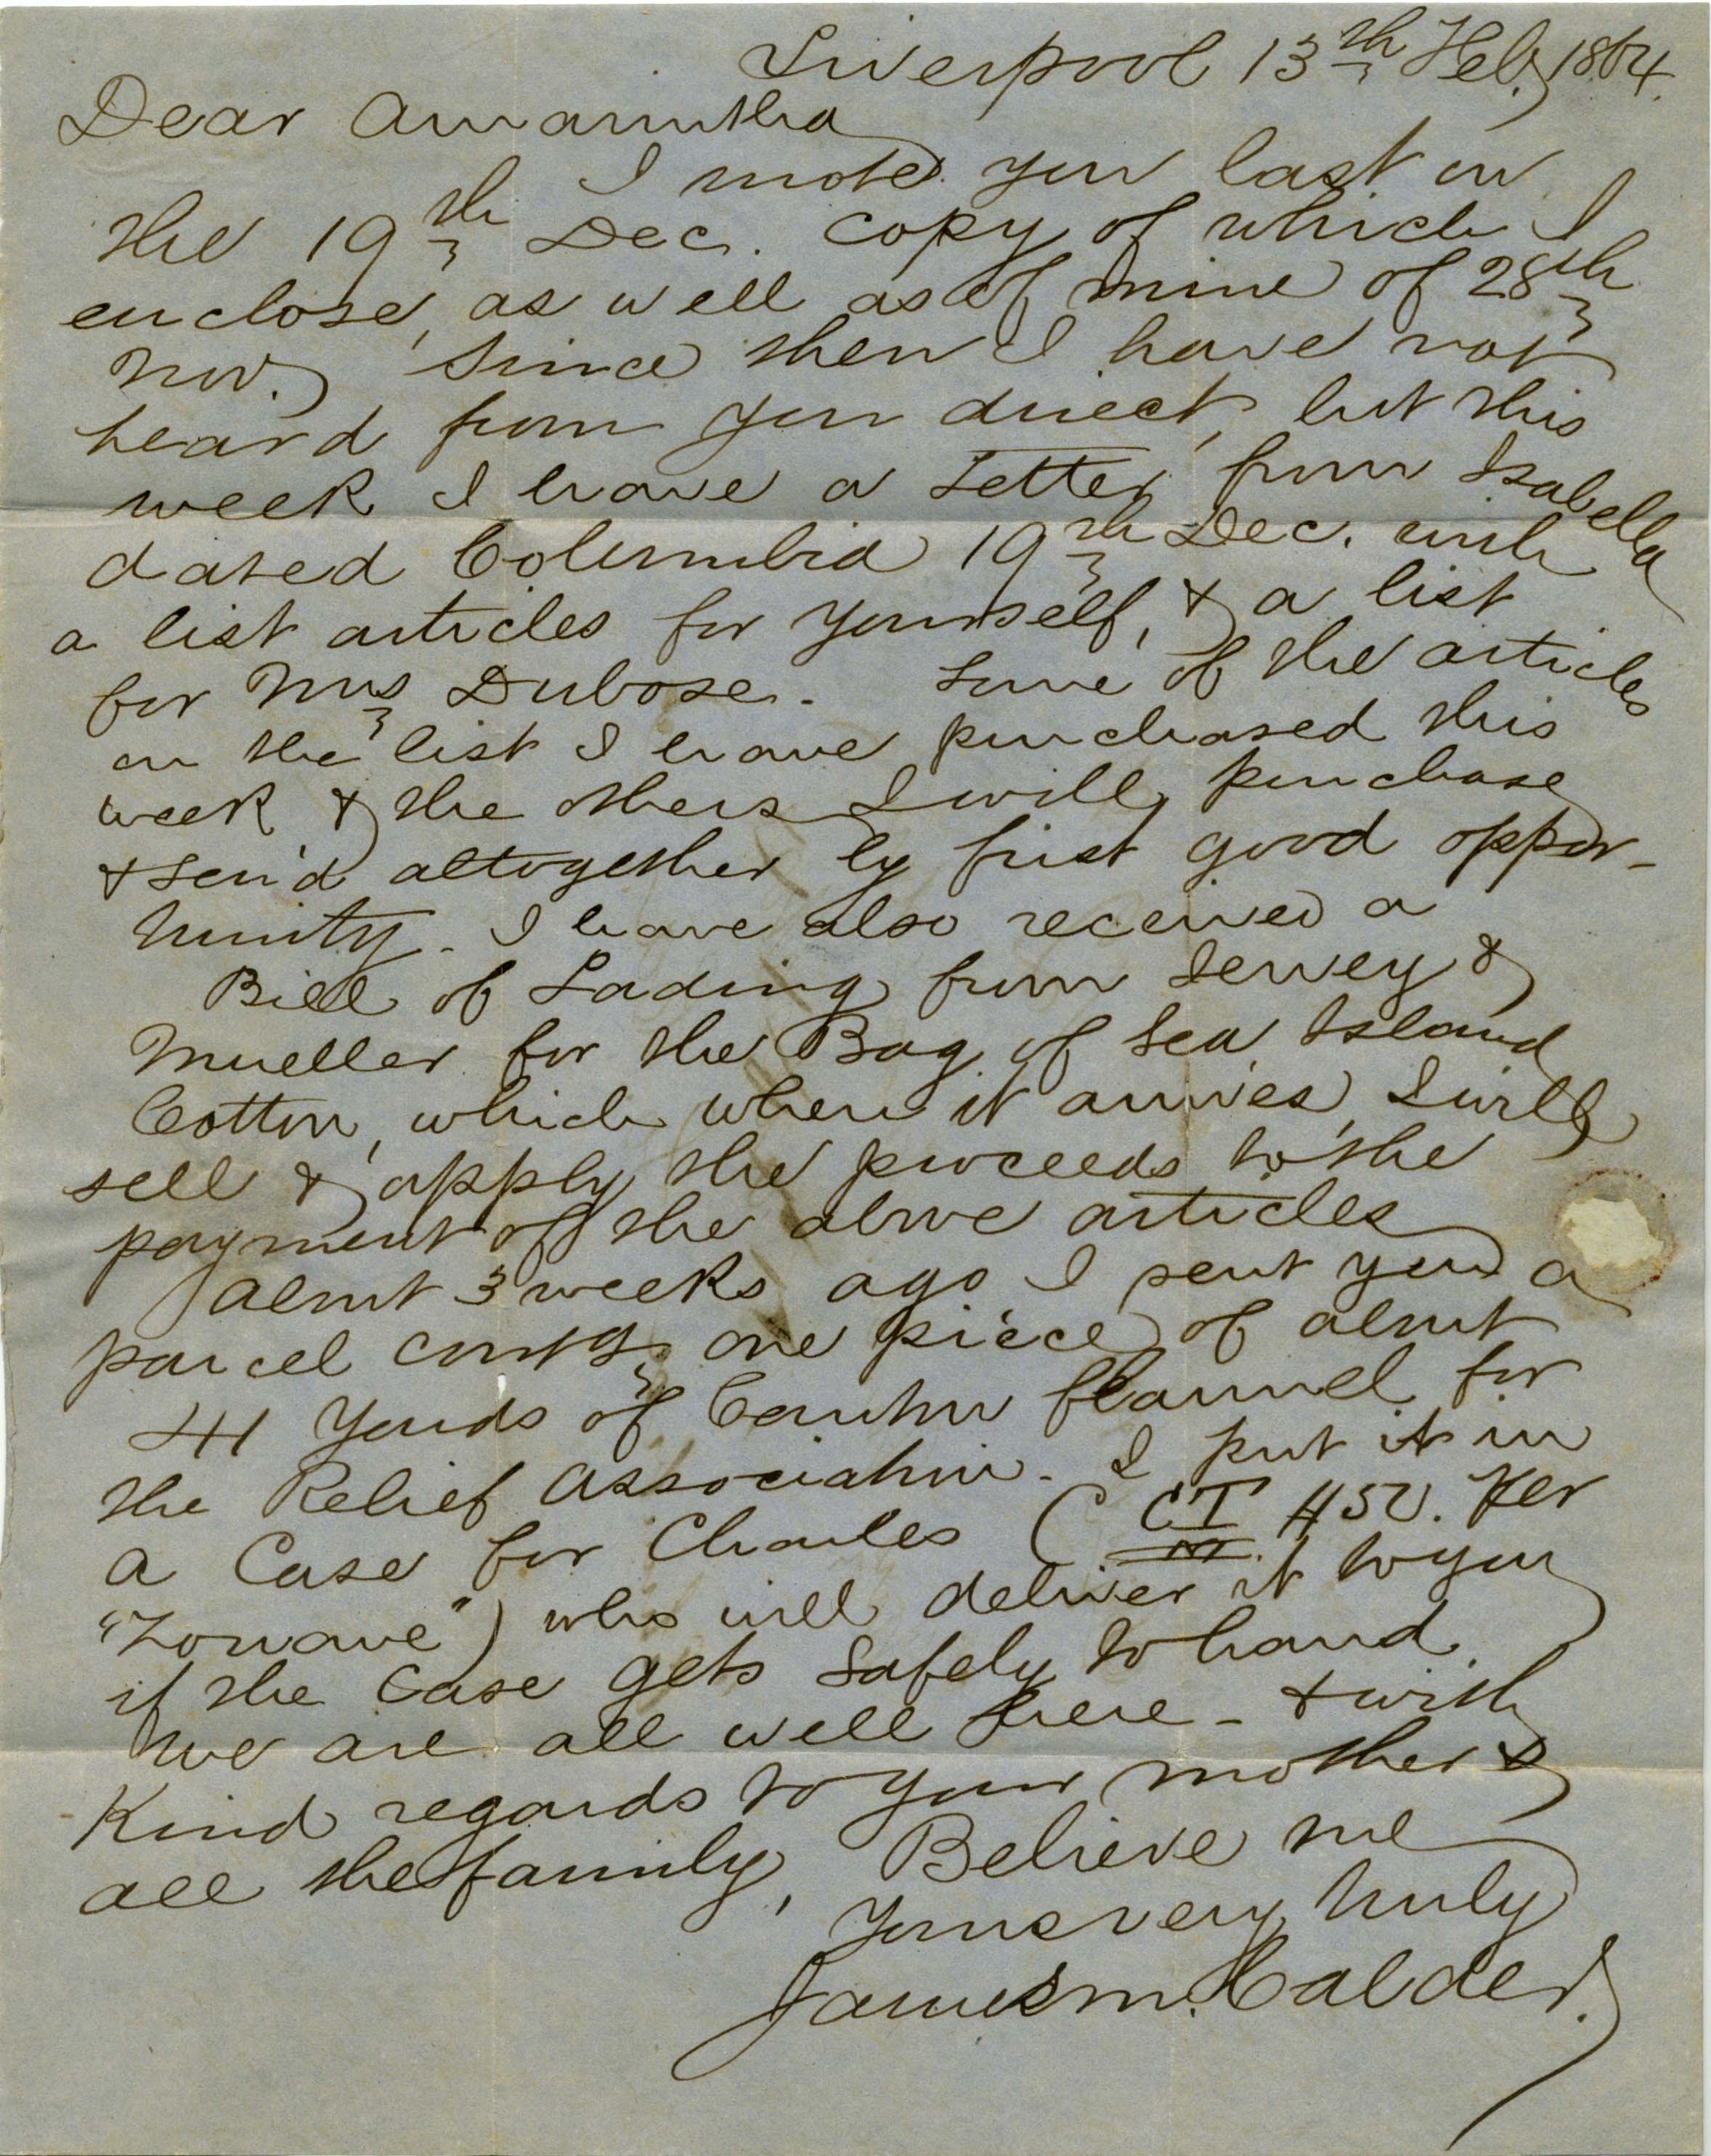 Liverpool 13th Feby 1864.
Dear Amarinthia
I wrote you last on
the 19th Dec. copy of which I
enclose, as well as of mine of 28th
Nov. Since then I have not
heard from you direct, but this
week I have a Letter from Isabella
dated Columbia 19th Dec. with
a list articles for yourself, & a list
for Mrs Dubose. Some of the articles
on the list I have purchased this
week & the others I will purchase
& send altogether by first good oppor-
tunity. I have also received a
Bill of Lading from Jervey &
Mueller for the Bag of Sea Island
Cotton, which when it arrives, I will
sell & apply the proceeds to the
payment of the above articles
About 3 weeks ago I sent you a
parcel contg one piece of about
41 Yards of Canton flannel for
the Relief Association. I put it in
a Case for Charles ( CT #50. Per
m
"Zouave") who will deliver it to you
if the Case gets safely to hand.
We are all well here - & with
Kind regards to your mother &
all the family, Believe me
Yours very truly
James M. Calder.